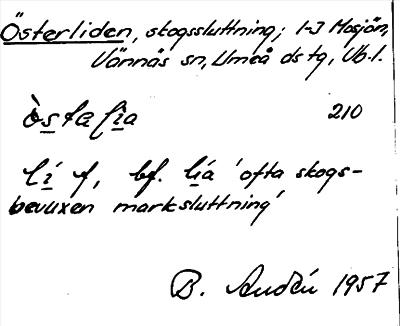 Österliden, skogssluttning; 1-3 Mosjön,
Vännäs sn, Umeå ds tg, Vb. l.
òsta lìa 210
lí f, bf. lía 'ofta skogs-
bevuxen marksluttning'
B. Audén 1957